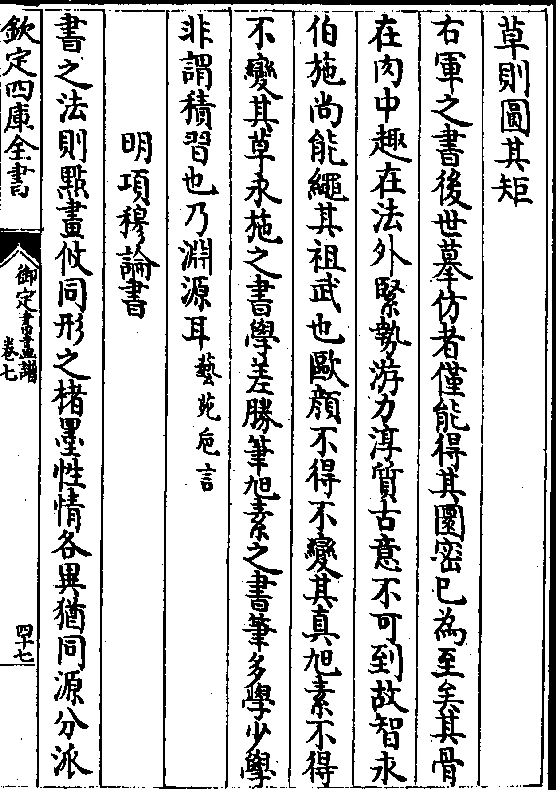 草則圓其矩
右軍之書後世摹仿者僅能得其圓密已為至矣其骨
在肉中趣在法外緊勢游力淳質古意不可到故智永
伯施尚能繩其祖武也歐顔不得不變其真旭素不得
不變其草永施之書學差勝筆旭素之書筆多學少學
非謂積習也乃淵源耳藝苑巵言
明項穆論書
書之法則㸃畫攸同形之楮墨性情各異猶同源分派
欽定四庫全書
御定書畫譜
卷七
四十七